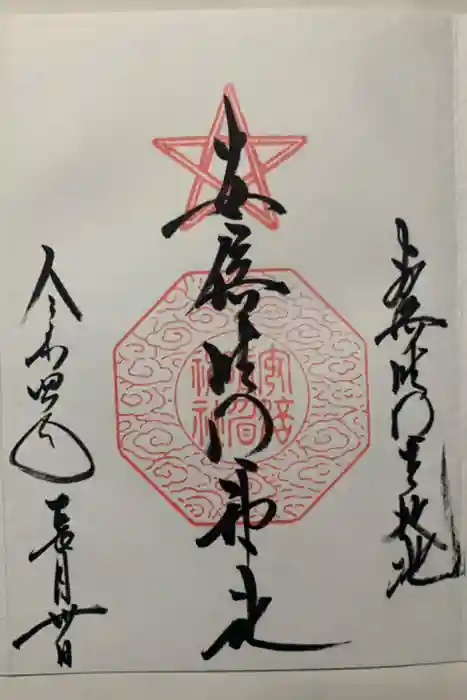 安倍晴明生誕地
安倍晴明神社
安倍
晴明
神社
令和四年 月卅日